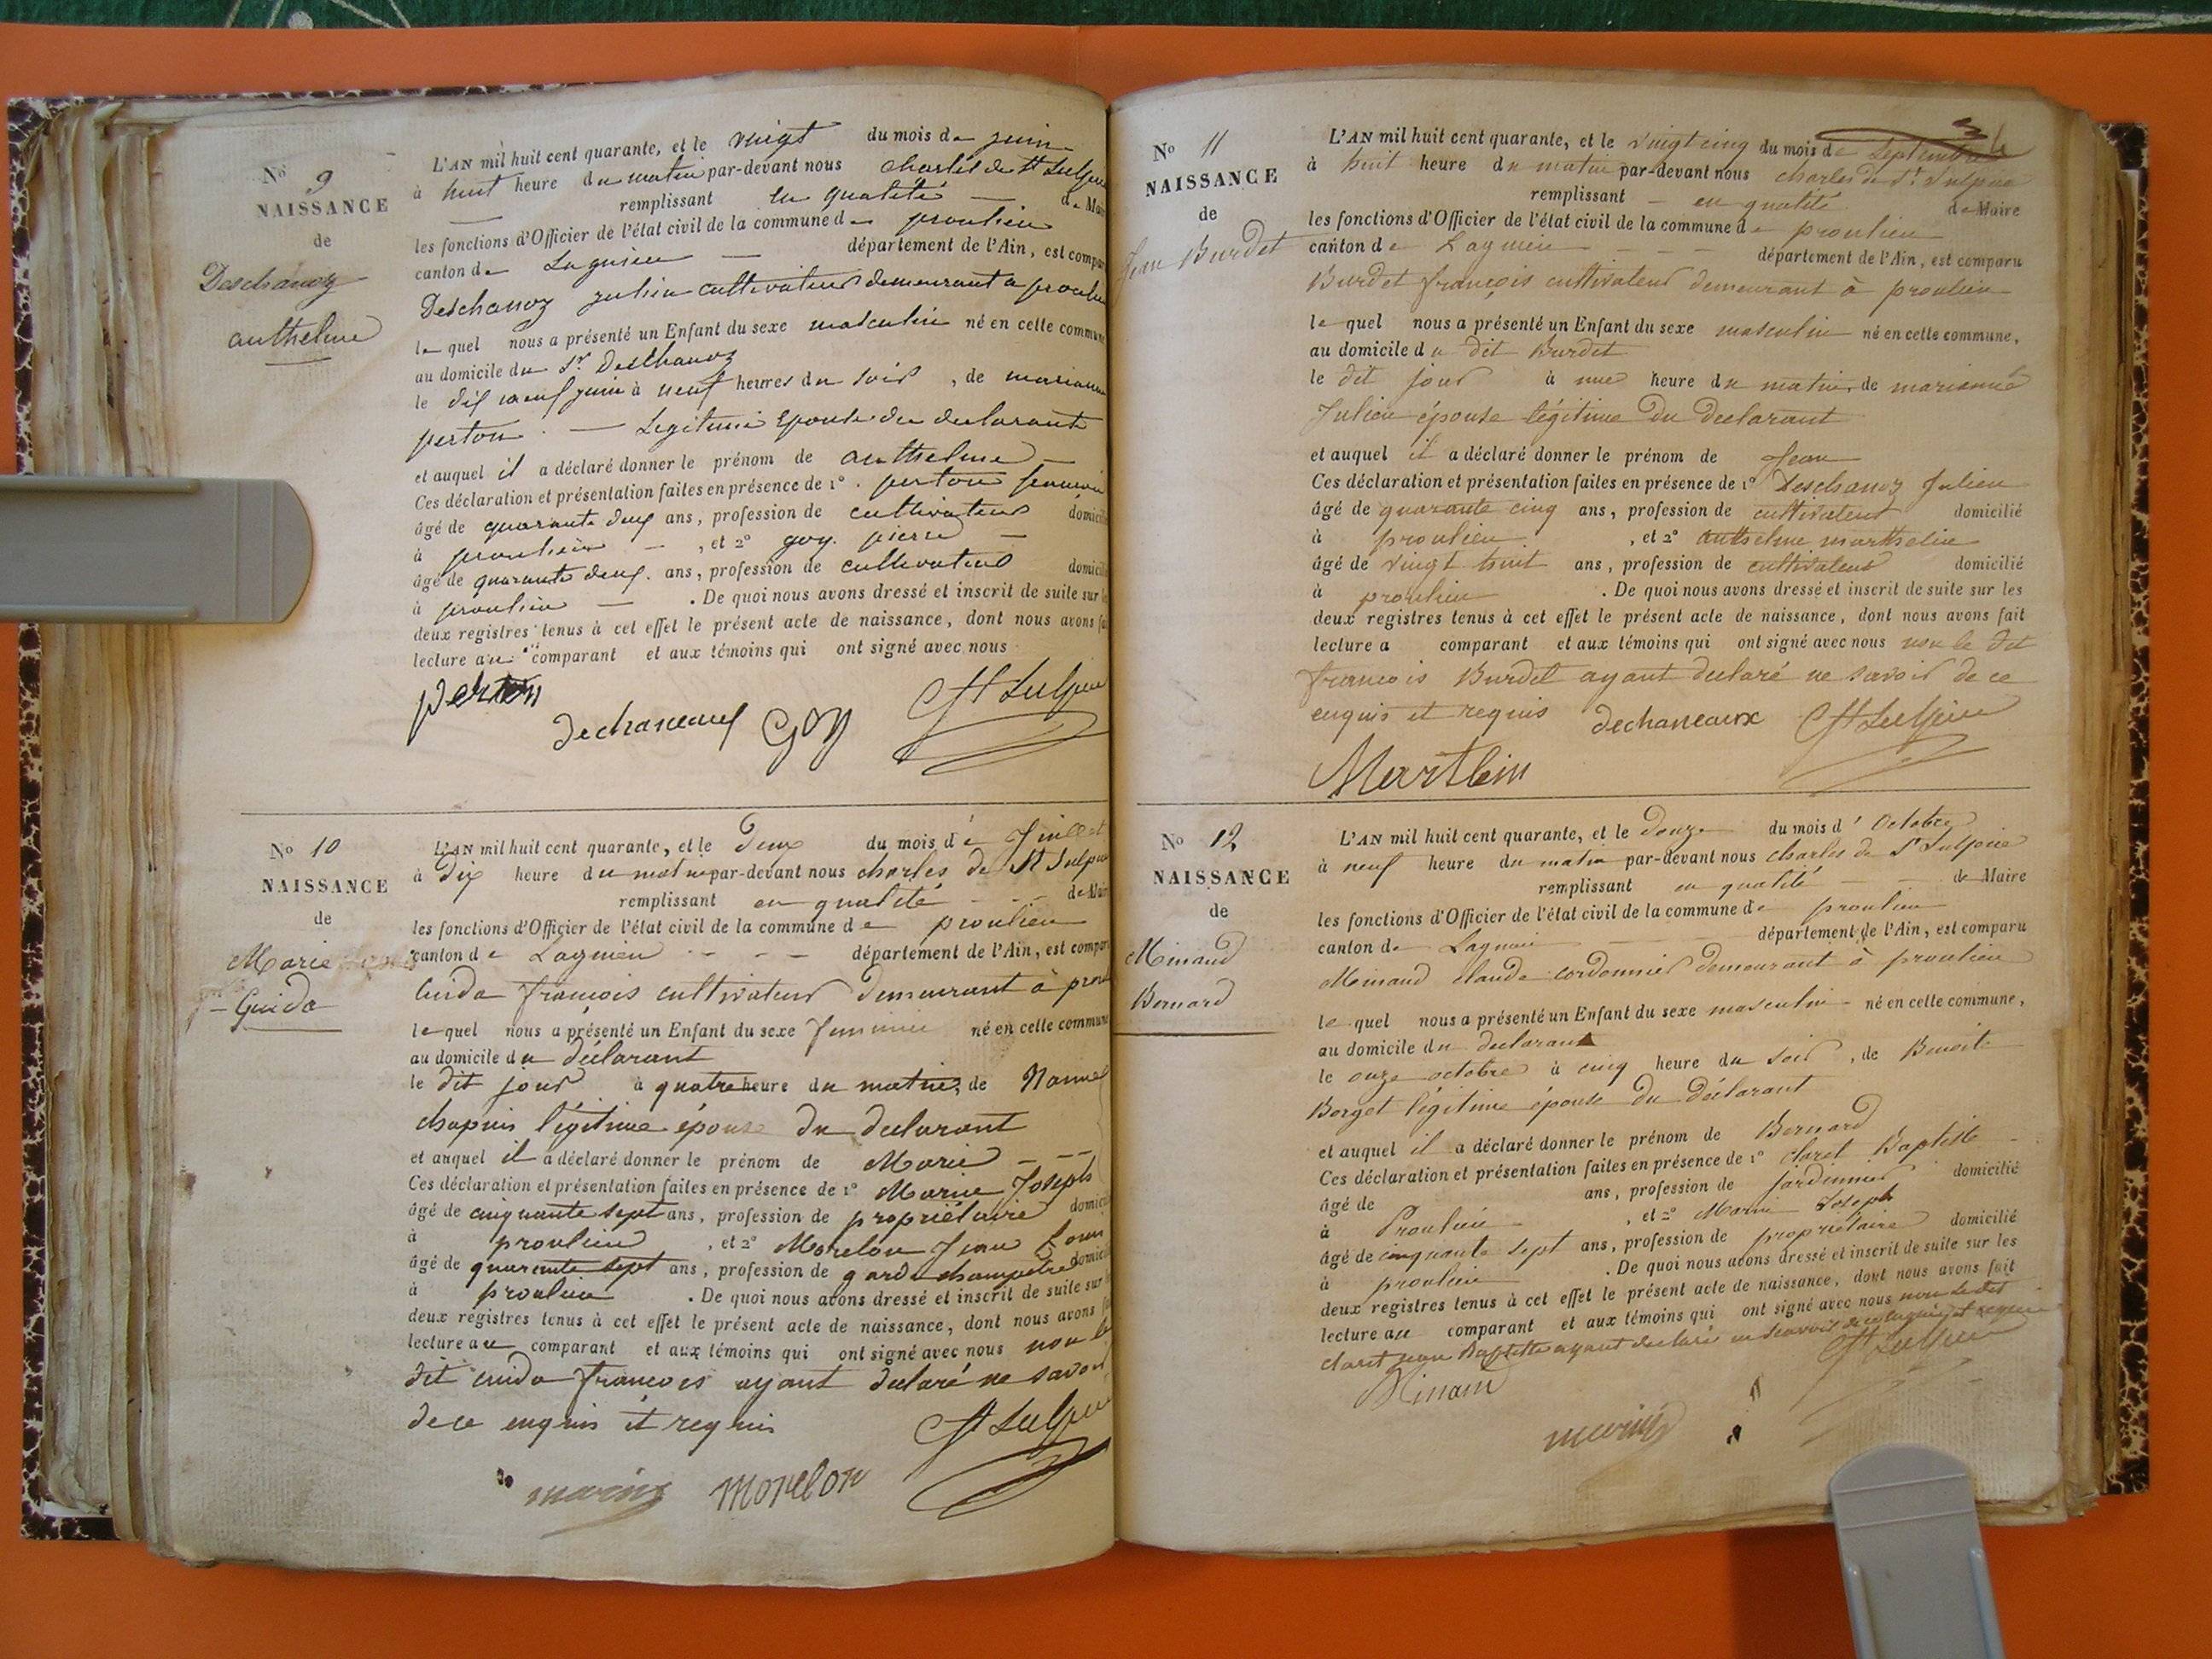 No 9
NAISSANCE
de
Deschanoz
anthelme
L'AN mil huit cent quarante, et le vingt du mois de juin
à huit heure du matin par-devant nous charles de St Sulpice
remplissant en qualité de Maire
les fonctions d'Officier de l'état civil de la commune de proulieu
canton de Lagnieu département de l'Ain, est comparu
Deschanoz julien cultivateur demeurant a proulieu
le quel nous a présenté un Enfant du sexe masculin né en cette commune
au domicile du Sr. Deschanoz
le dix neuf juin à neuf heures du soir, de marianne
perton Legitime Epouse du declarant
et auquel il a déclaré donner le prénom de anthelme
Ces déclaration et présentation faites en présence de 1° perton
âgé de quarante deux ans, profession de cultivateur domicilié
à proulieu, et 2° goy pierre
âgé de quarante deux ans, profession de cultivateur domicilié
à proulieu. De quoi nous avons dressé et inscrit de suite sur les
deux registres tenus à cet effet le présent acte de naissance, dont nous avons fait
lecture au comparant et aux témoins qui ont signé avec nous
perton
dechaneaux GOY St Sulpice
No 10
NAISSANCE
de
Marie
Guida
L'AN mil huit cent quarante, et le Deux du mois de Juillet
à Dix heure du matin par-devant nous charles de St Sulpice
remplissant en qualité de Maire
les fonctions d'Officier de l'état civil de la commune de proulieu
canton de Lagnieu département de l'Ain, est comparu
Guida francois cultivateur demeurant à proulieu
le quel nous a présenté un Enfant du sexe feminin né en cette commune
au domicile du déclarant
le dit jour à quatre heure du matin, de
chapuis légitime épouse du declarant
et auquel il a déclaré donner le prénom de Marie
Ces déclaration et présentation faites en présence de 1° Marin Joseph
âgé de cinquante sept ans, profession de propriétaire domicilié
à proulieu, et 2° Morelon Jean Louis
âgé de quarante sept ans, profession de garde champetre domicilié
à proulieu. De quoi nous avons dressé et inscrit de suite sur les
deux registres tenus à cet effet le présent acte de naissance, dont nous avons fait
lecture au comparant et aux témoins qui ont signé avec nous non le
dit Guida francois ayant declaré ne savoir
de ce enquis et requis St Sulpice
marin morelon
No 11
NAISSANCE
de
Jean Burdet
L'AN mil huit cent quarante, et le vingt cinq du mois de Septembre
à huit heure du matin par-devant nous charles de St. Sulpice
remplissant en qualité de Maire
les fonctions d'Officier de l'état civil de la commune de proulieu
canton de Lagnieu département de l'Ain, est comparu
Burdet françois cultivateur demeurant à proulieu
le quel nous a présenté un Enfant du sexe masculin né en cette commune,
au domicile du dit Burdet
le dit jour à une heure du matin, de marianne
Julien épouse légitime du declarant
et auquel il a déclaré donner le prénom de Jean
Ces déclaration et présentation faites en présence de 1° Deschanoz Julien
âgé de quarante cinq ans, profession de cultivateur domicilié
à proulieu, et 2° anthelme marthelin
âgé de vingt huit ans, profession de cultivateur domicilié
à proulieu. De quoi nous avons dressé et inscrit de suite sur les
deux registres tenus à cet effet le présent acte de naissance, dont nous avons fait
lecture a comparant et aux témoins qui ont signé avec nous non le dit
francois Burdet ayant declaré ne savoir de ce
enquis et requis dechaneaux St Sulpice
No 12
NAISSANCE
de
Minaud
Bernard
L'AN mil huit cent quarante, et le Douze du mois d' Octobre
à neuf heure du matin par-devant nous charles de St Sulpice
remplissant en qualité de Maire
les fonctions d'Officier de l'état civil de la commune de proulieu
canton de Lagnieu département de l'Ain, est comparu
Minaud claude cordonnier demeurant à proulieu
le quel nous a présenté un Enfant du sexe masculin né en cette commune,
au domicile du declarant
le onze octobre à cinq heure du soir, de Benoite
Berget légitime épouse du déclarant
et auquel il a déclaré donner le prénom de Bernard
Ces déclaration et présentation faites en présence de 1° claret Baptiste
âgé de ans, profession de jardinnier domicilié
à Proulieu, et 2° Marin Joseph
âgé de cinquante sept ans, profession de propriétaire domicilié
à proulieu. De quoi nous avons dressé et inscrit de suite sur les
deux registres tenus à cet effet le présent acte de naissance, dont nous avons fait
lecture au comparant et aux témoins qui ont signé avec nous non le dit
claret jean Baptiste ayant declaré ne savoir de ce enquis et requis
Minam St Sulpice
marin